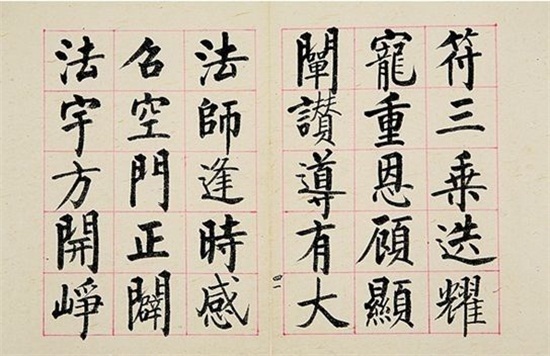 符三乘迭耀
寵重恩顧顯
闡讃導有大
四一
法師逢時感
召空門正闢
法宇方開崢